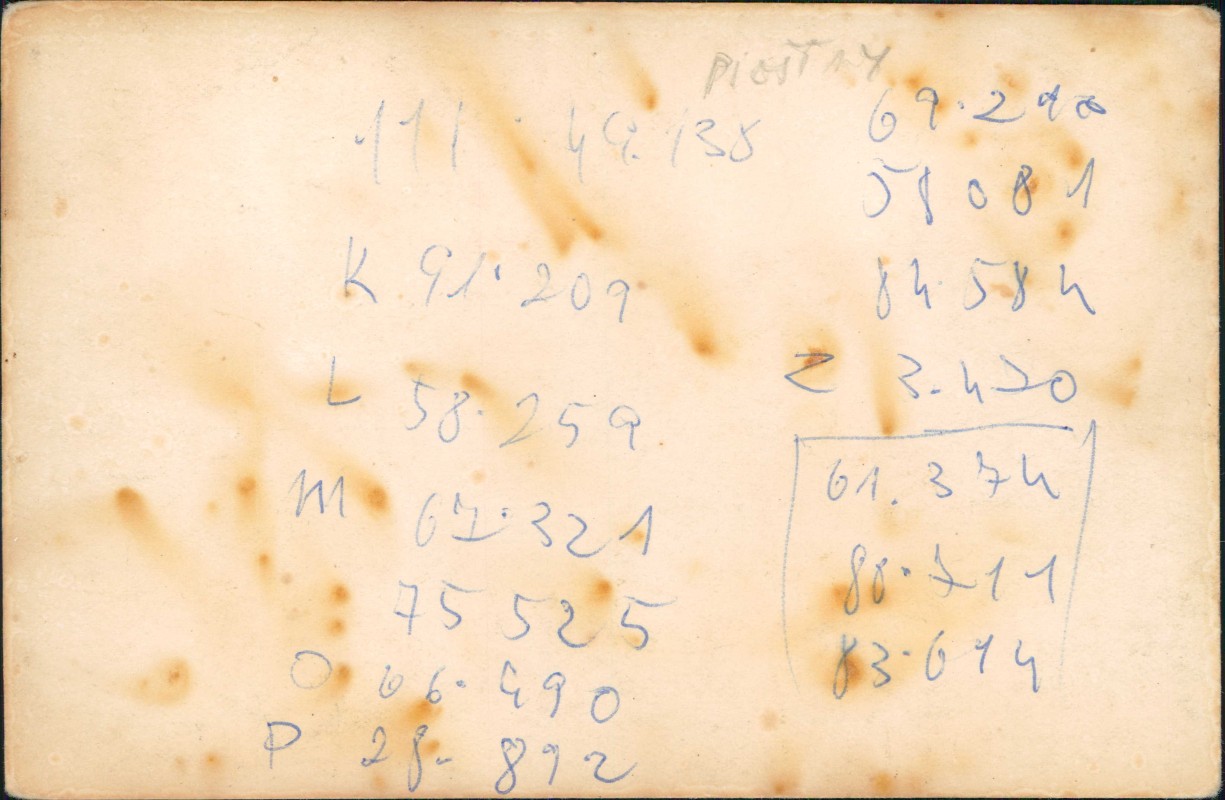 111 · 49.138
K 91·209
L 58·259
M 67·321
75 525
O 66·490
P 28- 892
58 081
84·584
Z 3.470
61.374
88·711
83·614